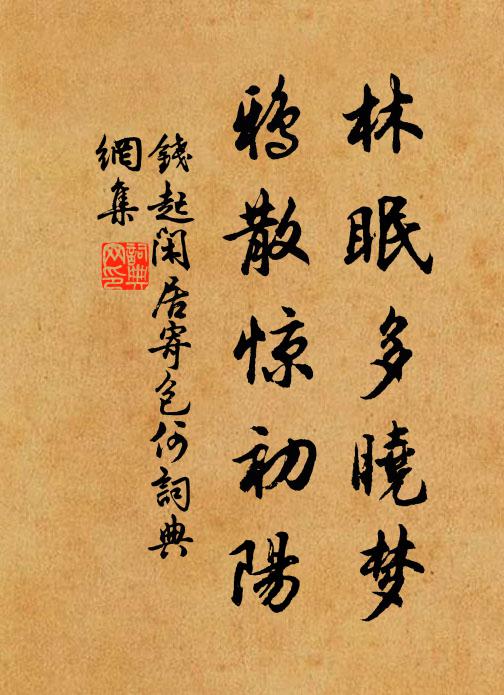 林眠多曉梦
鴉散惊初陽
錢起閑居寄包何詞典
網集
詞典
网印